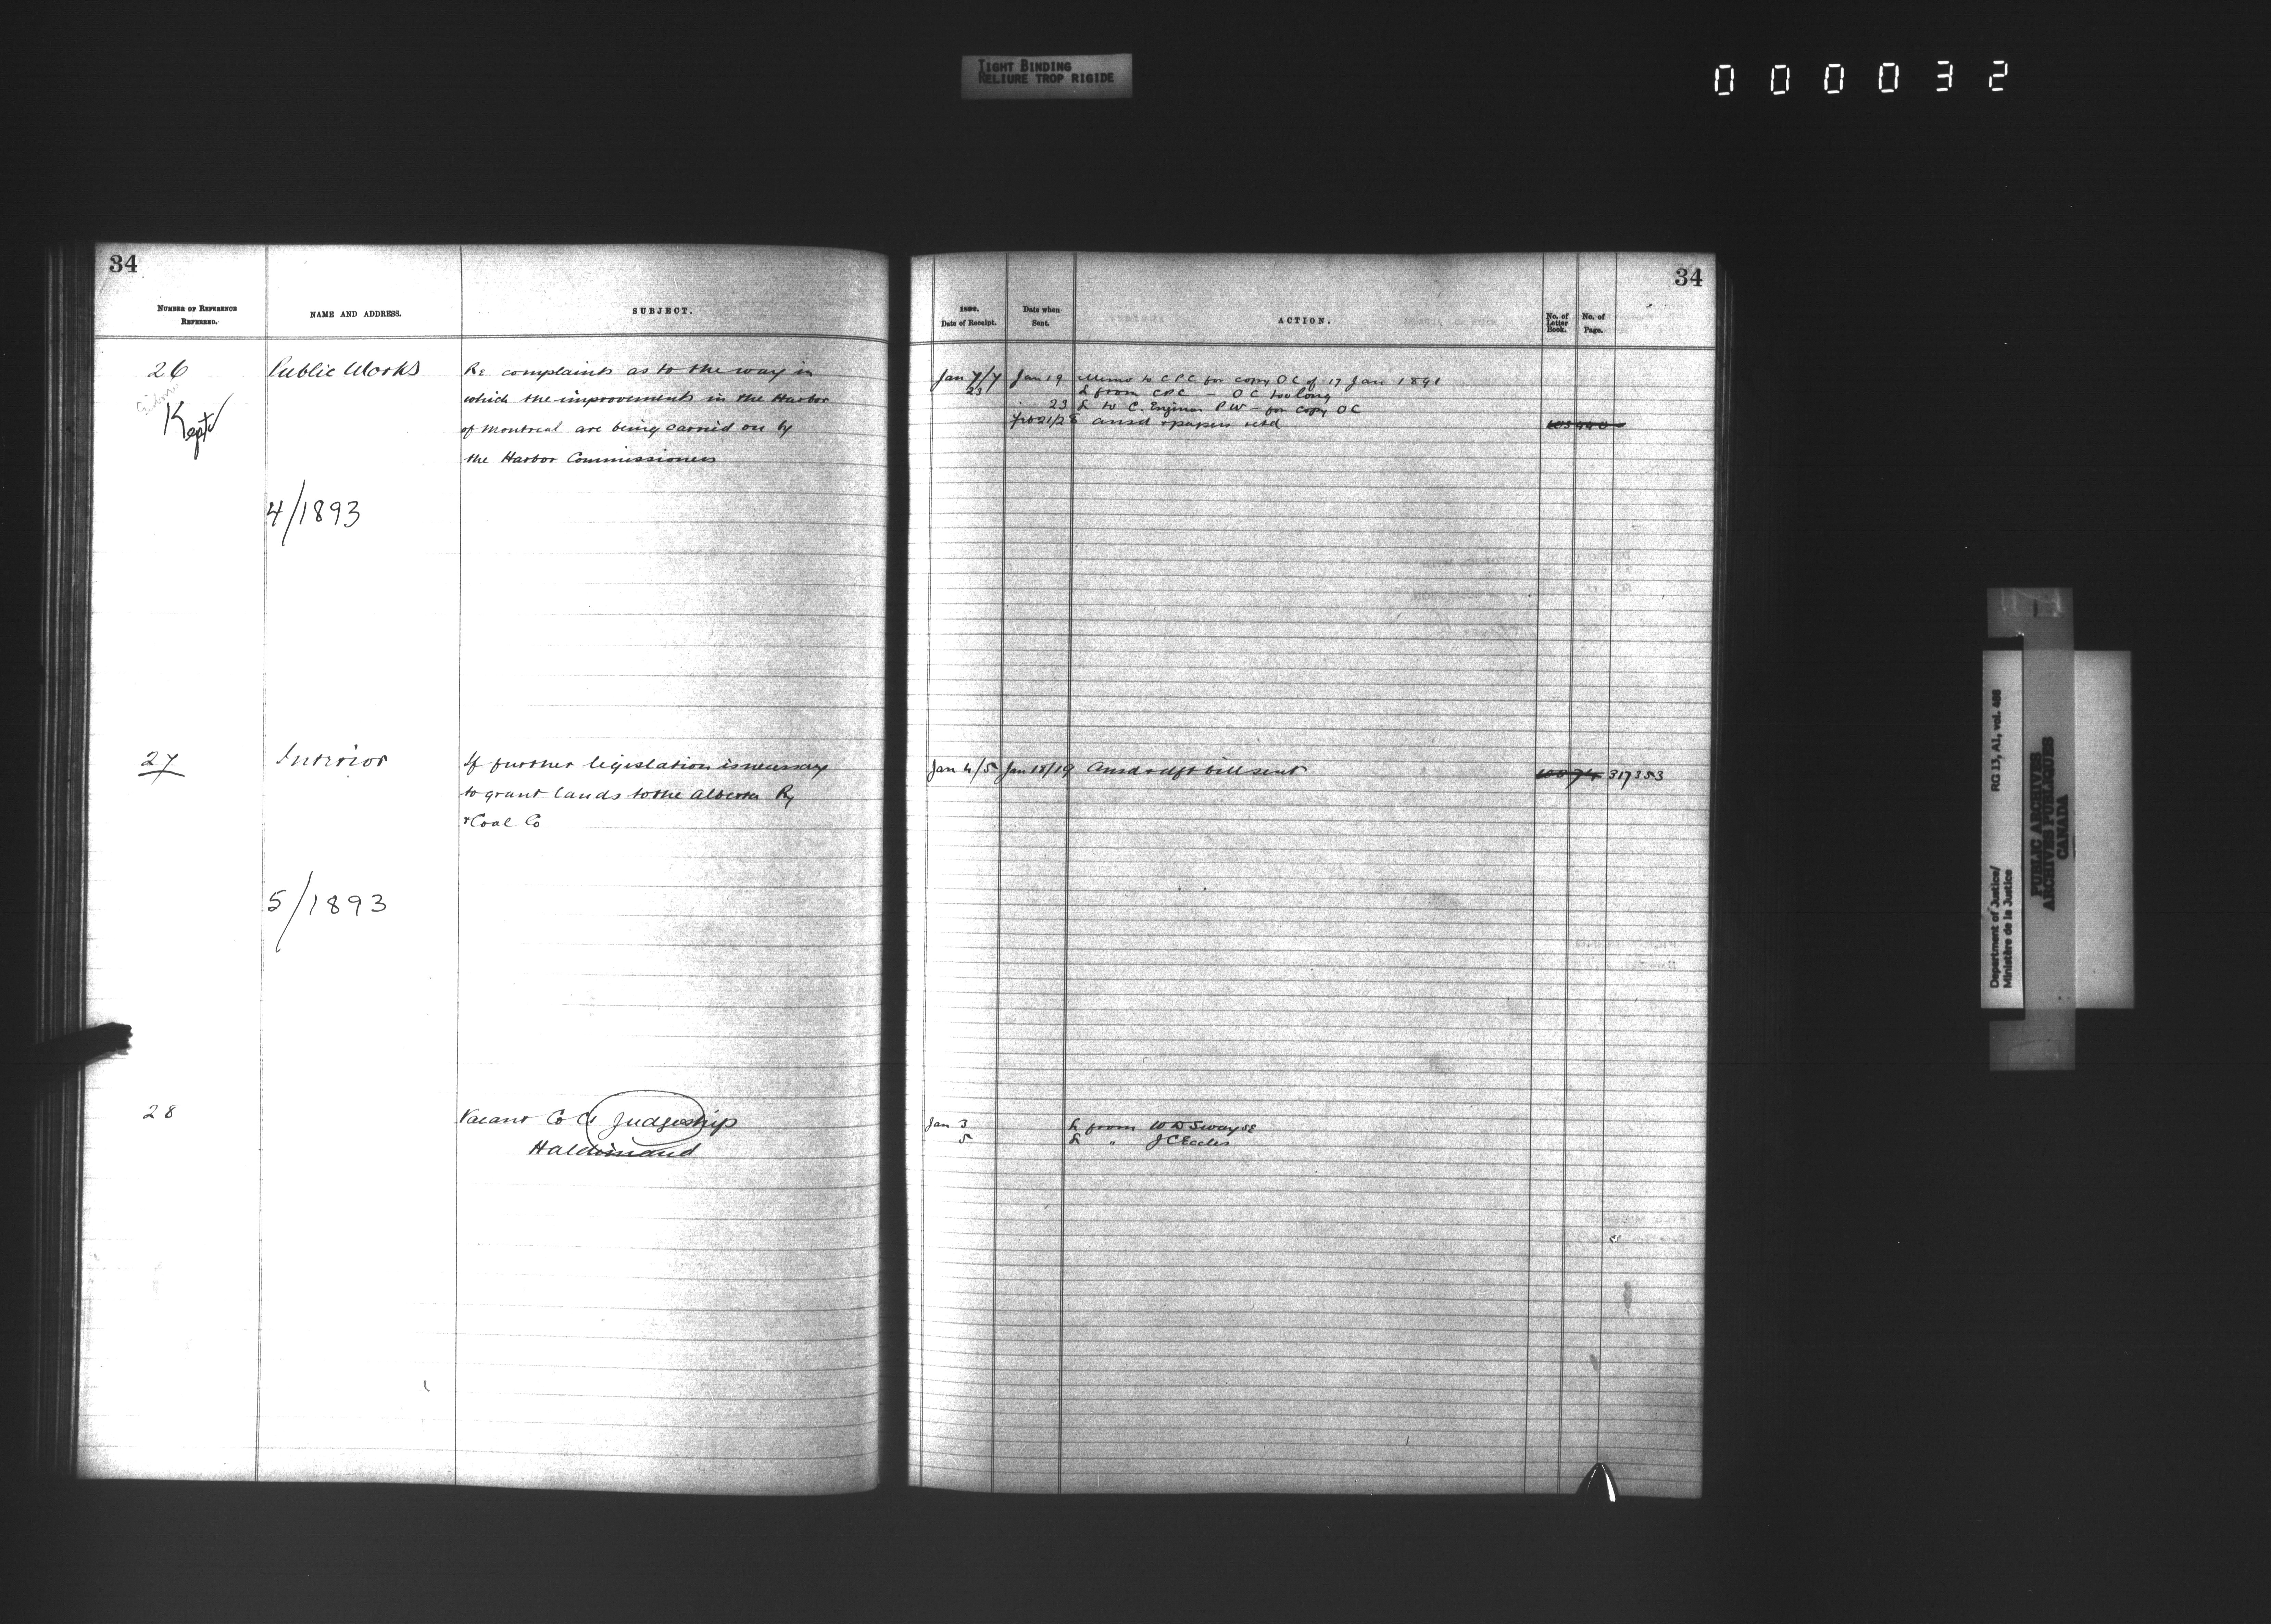 TIGHT BINDING
RELIURE TROP RIGIDE
000032
34
NUMBER OF REFERENCE
REFERRED.
NAME AND ADDRESS.
SUBJECT.
26
Public Works
Re complaints as to the way in
which the improvements in the Harbor
Kept
of Montreal are being carried on by
the Harbor Commissioners
4/1893
27
Interior
If further legislation is necessary
to grant lands to the Alberta Ry
& Coal Co
5/1893
28
Vacant Co Ct Judgeship
Haldimand
34
Date of Receipt.
Date when
Sent.
ACTION.
No. of
Letter
Book.
No. of
Page.
Jan 7/7 Jan 19 Memo to CPC for copy OC of 17 Jan 1891
23 L from CPC - OC too long
23 L to C. Engineer PW - for copy OC
ansd & papers retd
Jan 4/5 Jan 18/19 Ansd & dft bill sent 317353
Jan 3 L from W D Swayze
5 L " J C Eccles
Department of Justice/
Ministère de la Justice
RG 13, A1, vol. 488
PUBLIC ARCHIVES
ARCHIVES PUBLIQUES
CANADA